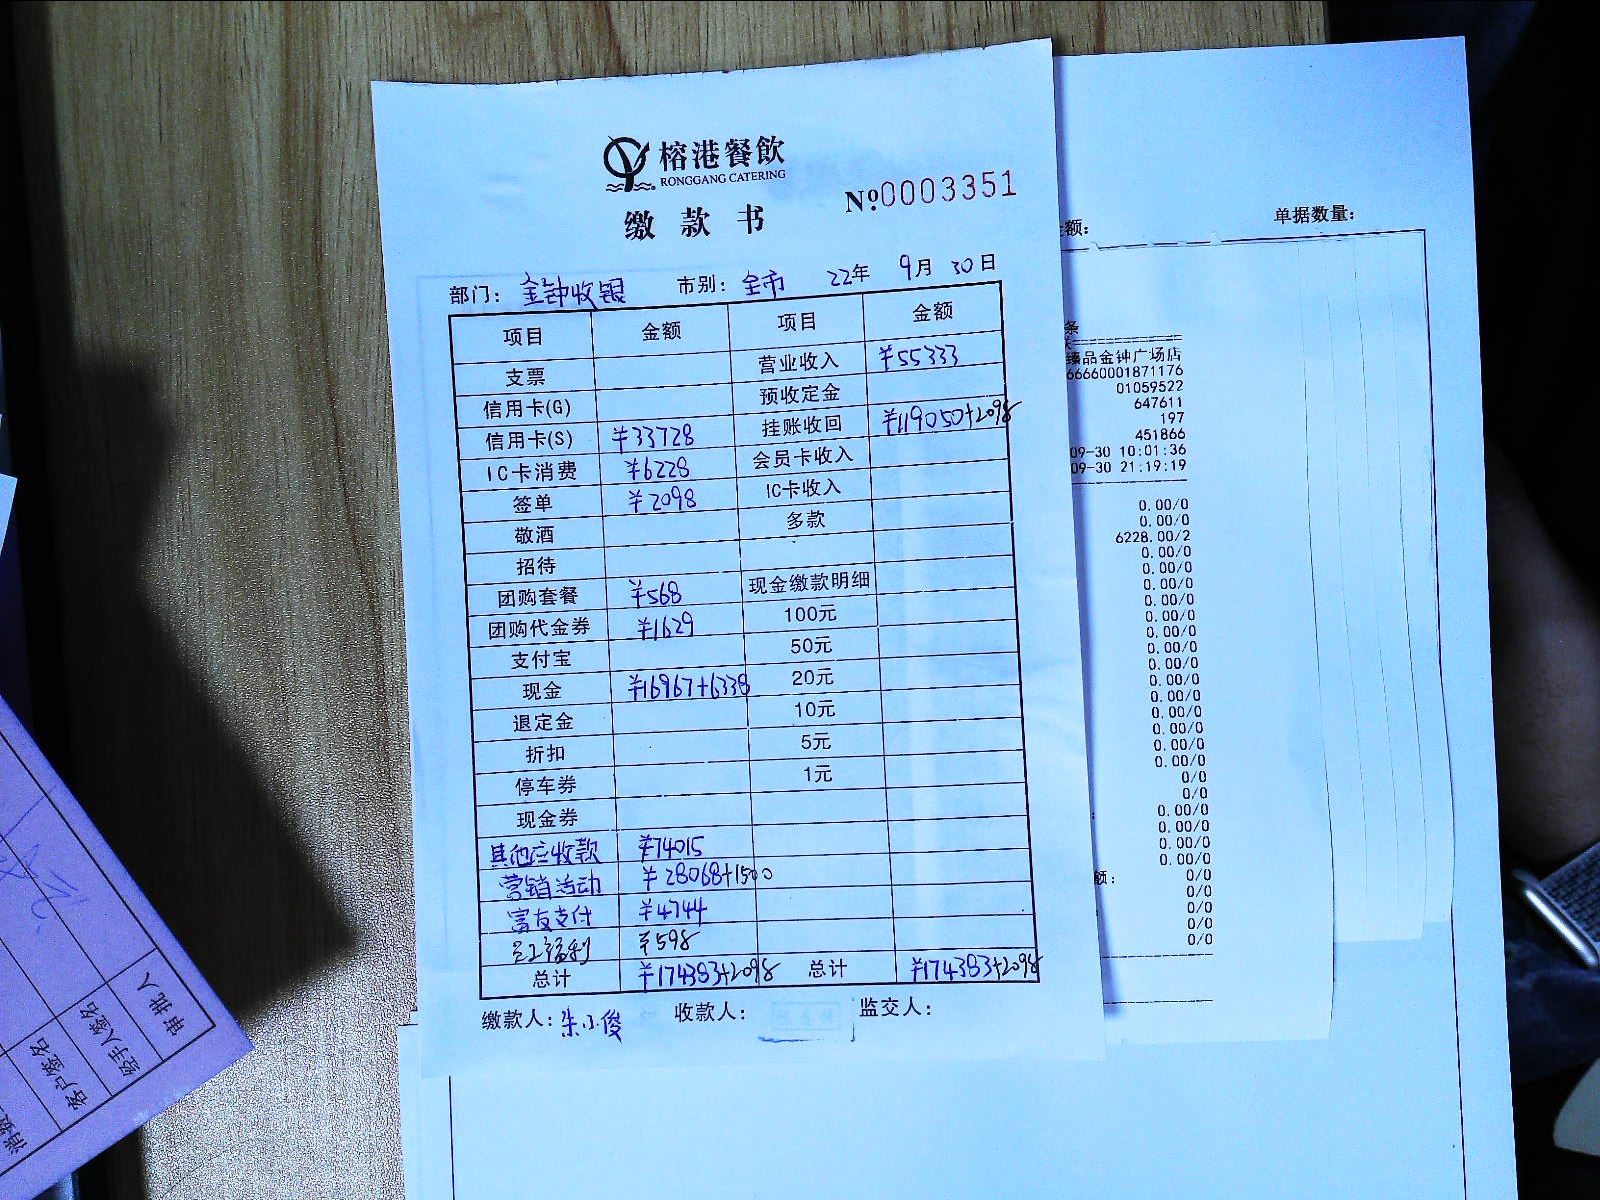 榕港餐飲
RONGGANG CATERING
№0003351
缴款书
部门：金钟收银 市别：全市 22年 9月 30日
项目 金额 项目 金额
支票 营业收入 ¥55333
信用卡(G) 预收定金
信用卡(S) ¥33728 挂账收回 ¥119050+2098
IC卡消费 ¥6228 会员卡收入
签单 ¥2098 IC卡收入
敬酒 多款
招待
团购套餐 ¥568 现金缴款明细
团购代金券 ¥1629 100元
支付宝 50元
现金 ¥16967+6338 20元
退定金 10元
折扣 5元
停车券 1元
现金券
其他应收款 ¥74015
营销活动 ¥28068+1500
富友支付 ¥4744
员工福利 ¥598
总计 ¥174383+2098 总计 ¥174383+2098
缴款人：朱小俊 收款人： 监交人：
额： 单据数量：
条
臻品金钟广场店
66660001871176
01059522
647611
197
451866
09-30 10:01:36
09-30 21:19:19
0.00/0
0.00/0
6228.00/2
0.00/0
0.00/0
0.00/0
0.00/0
0.00/0
0.00/0
0.00/0
0.00/0
0.00/0
0.00/0
0.00/0
0.00/0
0.00/0
0.00/0
0/0
0/0
0.00/0
0.00/0
0.00/0
0.00/0
额： 0/0
0/0
0/0
0/0
0/0
审批人
经手人签名
客户签名
消费